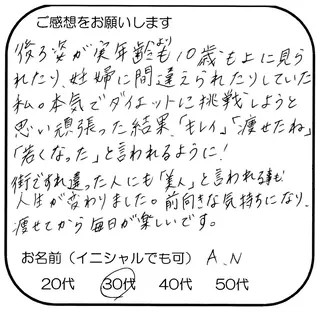 ご感想をお願いします
後ろ姿が実年齢より10歳も上に見ら
れたり、妊婦に間違えられたりしていた
私。本気でダイエットに挑戦しようと
思い頑張った結果、「キレイ」「痩せたね」
「若くなった」と言われるように!
街ですれ違った人にも「美人」と言われる事も
人生が変わりました。前向きな気持ちになり、
痩せてから毎日が楽しいです。
お名前(イニシャルでも可) A.N
20代 30代 40代 50代